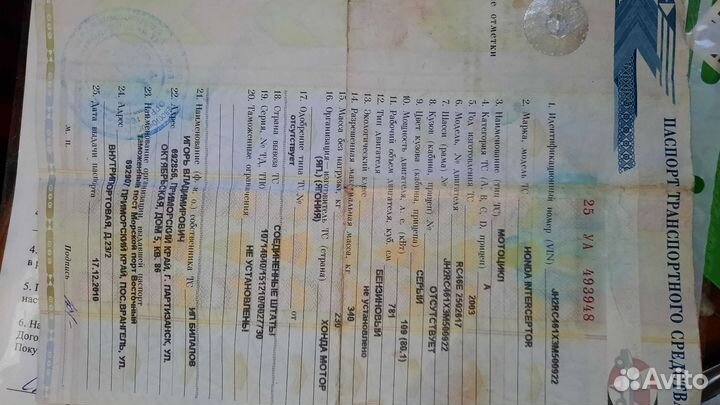 ПАСПОРТ ТРАНСПОРТНОГО СРЕДСТВА
25 УА 493948
е отметки
1. Идентификационный номер (VIN) JH2RC461X3M500922
2. Марка, модель ТС HONDA INTERCEPTOR
3. Наименование (тип ТС) МОТОЦИКЛ
4. Категория ТС (А, В, С, D, прицеп) А
5. Год изготовления ТС 2003
6. Модель, № двигателя RC46E 2502617
7. Шасси (рама) № JH2RC461X3M500922
8. Кузов (кабина, прицеп) № ОТСУТСТВУЕТ
9. Цвет кузова (кабины, прицепа) СЕРЫЙ
10. Мощность двигателя, л. с. (кВт) 109 (80,1)
11. Рабочий объем двигателя, куб. см 781
12. Тип двигателя БЕНЗИНОВЫЙ
13. Экологический класс не установлено
14. Разрешенная максимальная масса, кг 340
15. Масса без нагрузки, кг 230
16. Организация-изготовитель ТС (страна) ХОНДА МОТОР
(ЯП.) (ЯПОНИЯ)
17. Одобрение типа ТС № от
отсутствует
18. Страна вывоза ТС СОЕДИНЕННЫЕ ШТАТЫ
19. Серия, № ТД, ТПО 10714040/151210/0027730
20. Таможенные ограничения НЕ УСТАНОВЛЕНЫ
21. Наименование (ф. и. о.) собственника ТС ИП БИЛАЛОВ
ИГОРЬ ВЛАДИМИРОВИЧ
22. Адрес 692856, ПРИМОРСКИЙ КРАЙ, Г. ПАРТИЗАНСК, УЛ.
ОКТЯБРЬСКАЯ, ДОМ 5, КВ. 96
23. Наименование организации, выдавшей паспорт
Таможенный пост Морской порт Восточный
24. Адрес 692907 ПРИМОРСКИЙ КРАЙ, ПОС. ВРАНГЕЛЬ, УЛ.
ВНУТРИПОРТОВАЯ, Д.23/2
25. Дата выдачи паспорта 17.12.2010
М. П. Подпись
4.
в р
5. П
нас
6. На
Дого
Поку
Avito